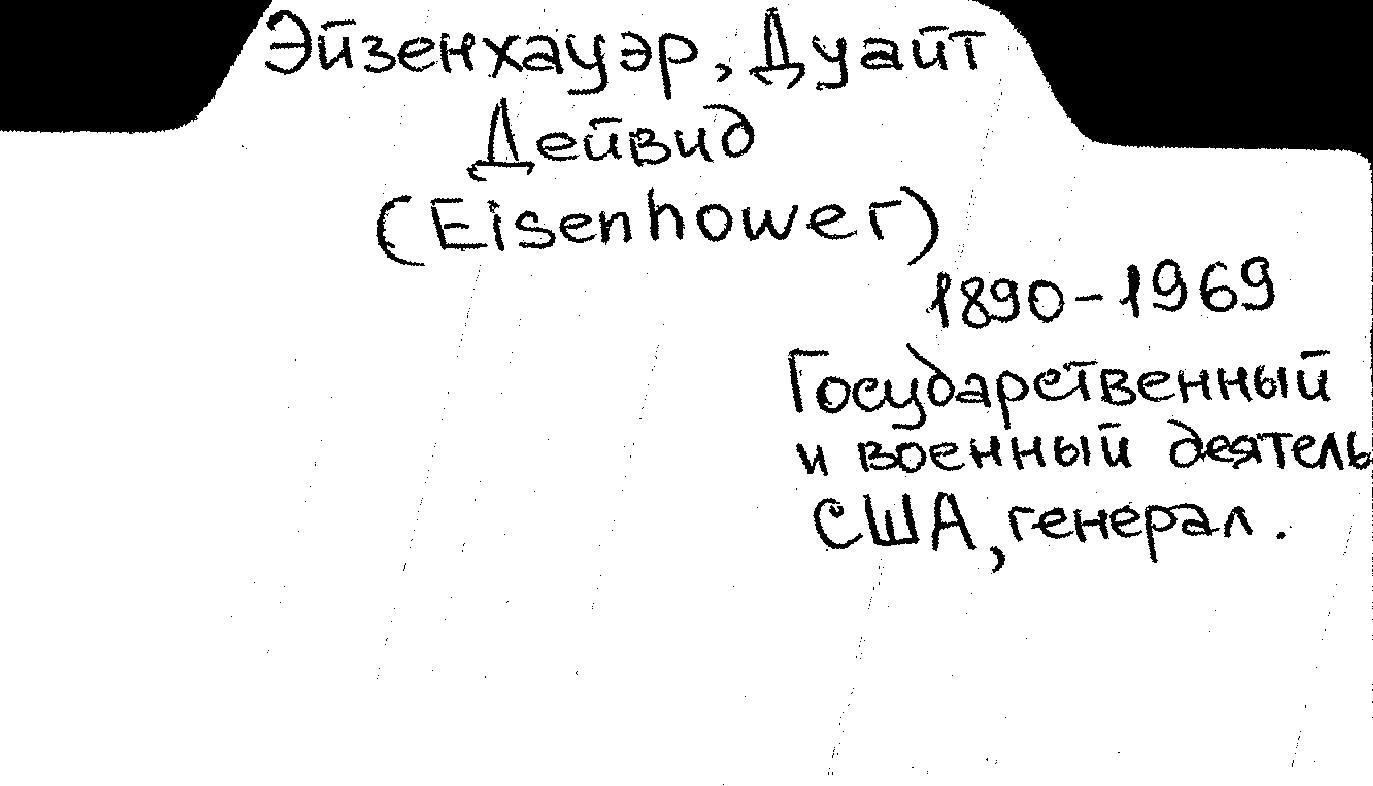 Эйзенхауэр, Дуайт
Дейвид
(Eisenhower)
1890-1969
Государственный
и военный деятель
США, генерал.